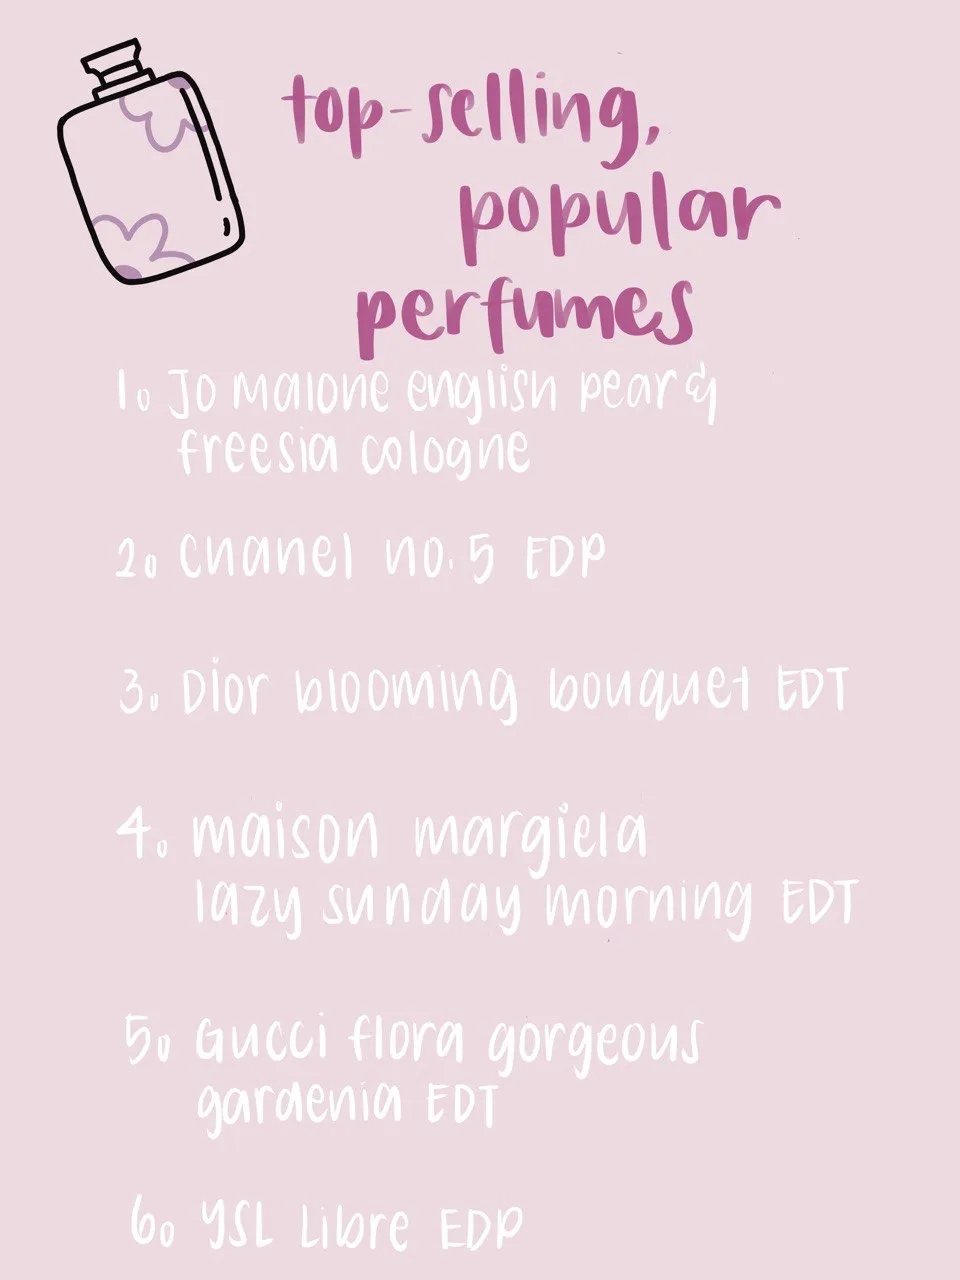 top-selling,
popular
perfumes
1. Jo malone english pear &
freesia cologne
2. chanel no. 5 EDP
3. Dior blooming bouquet EDT
4. maison margiela
lazy sunday morning EDT
5. Gucci flora gorgeous
gardenia EDT
6. YSL Libre EDP